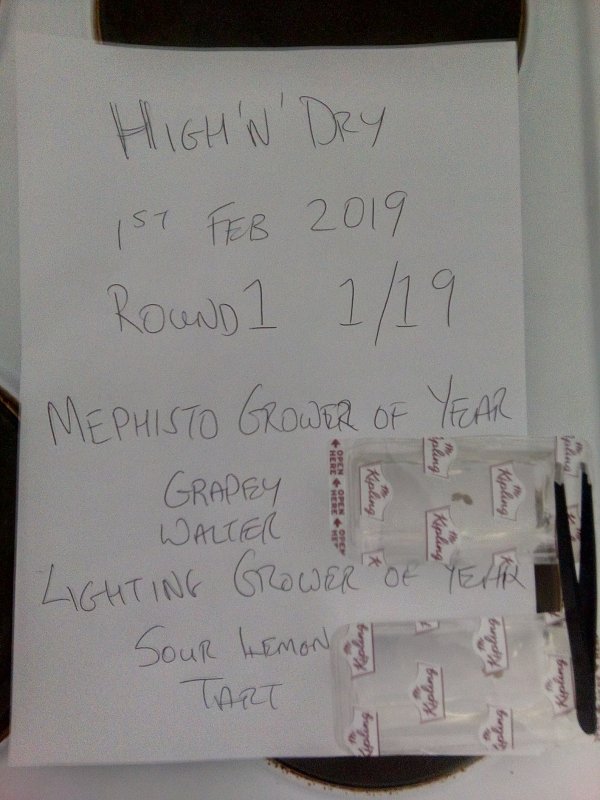 HIGH'N'DRY
1ST FEB 2019
ROUND 1 1/19
MEPHISTO GROWER OF YEAR
GRAPEY
WALTER
LIGHTING GROWER OF YEAR
SOUR LEMON
TART
OPEN HERE
OPEN HERE
OPEN
Mr Kipling
Kipling
Mr Kipling
Mr Kipling
Mr Kipling
Mr Kipling
Mr Kipling
Mr Kipling
Mr Kipling
Mr Kipling